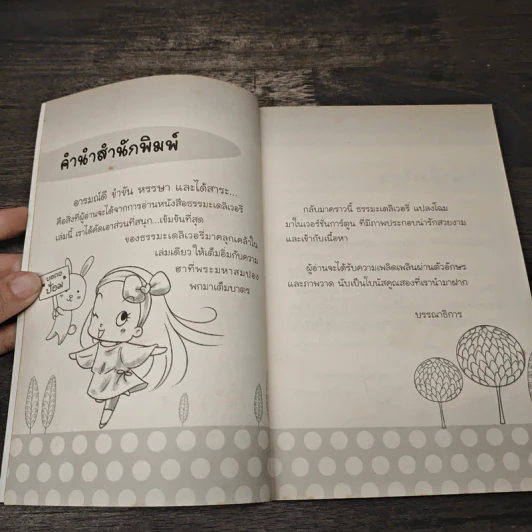 คำนำสำนักพิมพ์
อารมณ์ดี ขำขัน หรรษา และได้สาระ...
คือสิ่งที่ผู้อ่านจะได้จากการอ่านหนังสือธรรมะเดลิเวอรี่
เล่มนี้ เราได้คัดเอาส่วนที่สนุก...เข้มข้นที่สุด
ของธรรมะเดลิเวอรี่มาคลุกเคล้าใน
เล่มเดียว ให้เต็มอิ่มกับความ
ฮาที่พระมหาสมปอง
พกมาเต็มบาตร
กลับมาคราวนี้ ธรรมะเดลิเวอรี่ แปลงโฉม
มาในเวอร์ชันการ์ตูน ที่มีภาพประกอบน่ารักสวยงาม
และเข้ากับเนื้อหา
ผู้อ่านจะได้รับความเพลิดเพลินผ่านตัวอักษร
และภาพวาด นับเป็นโบนัสคูณสองที่เรานำมาฝาก
บรรณาธิการ